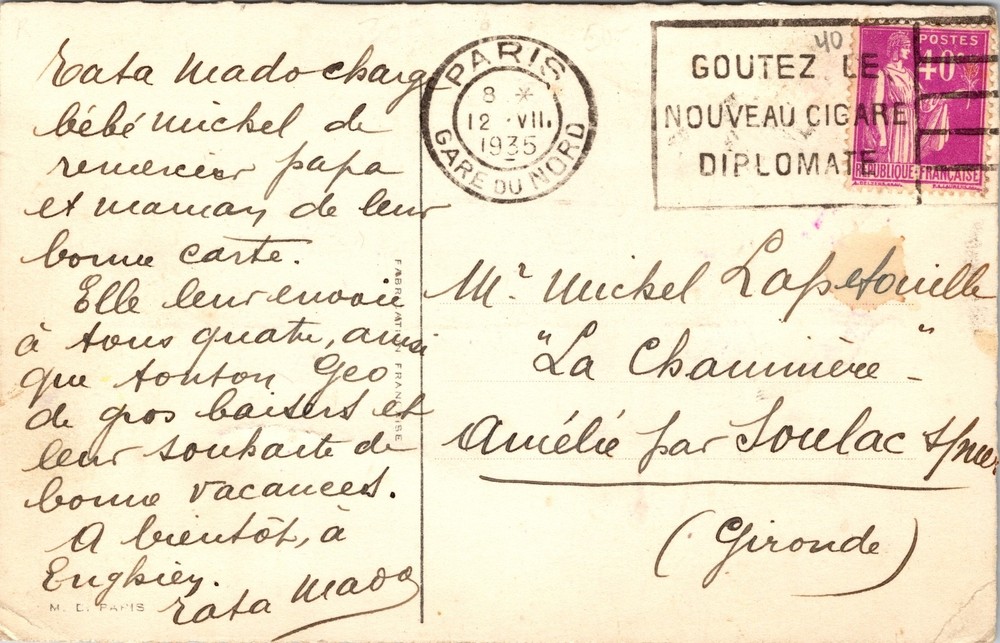 Tata Mado charge
bébé Michel de
remercier papa
et maman de leur
bonne carte.
Elle leur envoie
à tous quatre, ainsi
que tonton Geo
de gros baisers et
leur souhaite de
bonne vacances.
A bientôt, à
Enghien.
Tata Mado
M. D. PARIS
FABRICATION FRANÇAISE
PARIS
8 *
12 VII.
1935
GARE DU NORD
GOUTEZ LE
NOUVEAU CIGARE
DIPLOMATE
40
POSTES
40c
REPUBLIQUE FRANÇAISE
Mr Michel Lapetouille
"La Chaumière"
Amélie par Soulac s/mer
(Gironde)